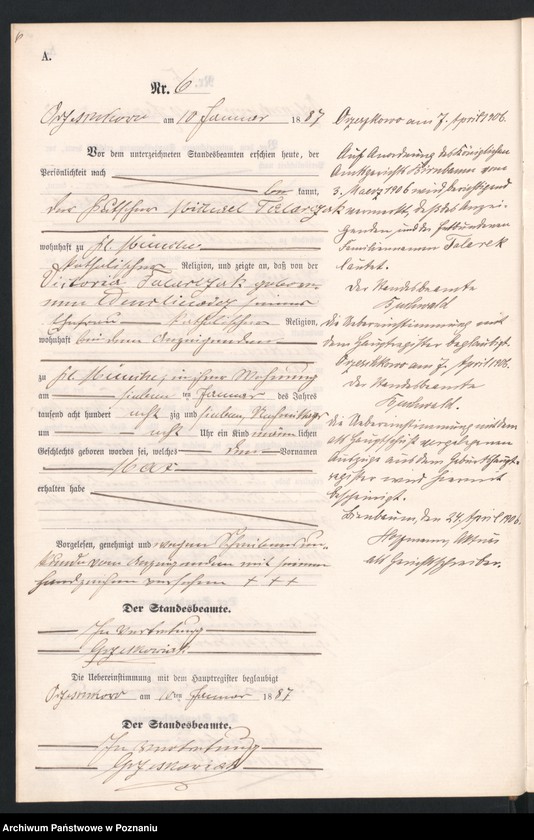 6
A.
Nr. 6
am 10 Januar 1887
Vor dem unterzeichneten Standesbeamten erschien heute, der
Persönlichkeit nach
be kannt,
der Michael Talarczak
wohnhaft zu Kl. Münche
katholischer Religion, und zeigte an, daß von der
Victoria Talarczak geboren
seiner
Ehefrau katholischer Religion,
wohnhaft bei dem Anzeigenden
zu Kl. Münche, in ihrer Wohnung
am sieben ten Januar des Jahres
tausend acht hundert acht zig und sieben, Nachmittags
um acht Uhr ein Kind männ lichen
Geschlechts geboren worden sei, welches den Vornamen
Max
erhalten habe
Vorgelesen, genehmigt und wegen Schreibensun-
kunde vom Anzeigenden mit seinem
Handzeichen versehen + + +
Der Standesbeamte.
In Vertretung
Die Uebereinstimmung mit dem Hauptregister beglaubigt
am 10ten Januar 1887
Der Standesbeamte.
In Vertretung
Orzeszkowo am 7. April 1906.
Auf Anordnung des Königlichen
Amtsgericht Birnbaum vom
3. Maerz 1906 wird berichtigend
vermerkt, daß des Anzei-
genden und der
Familienname Talarek
lautet.
Der Standesbeamte
Die Uebereinstimmung mit
dem Hauptregister beglaubigt
Orzeszkowo am 7. April 1906.
Der Standesbeamte
Die Uebereinstimmung mit dem
als Hauptschrift vorgelegenen
Auszuge aus dem Geburtshaupt-
register wird hiermit
bescheinigt.
Birnbaum, den 24. April 1906.
als Gerichtsschreiber.
Archiwum Państwowe w Poznaniu